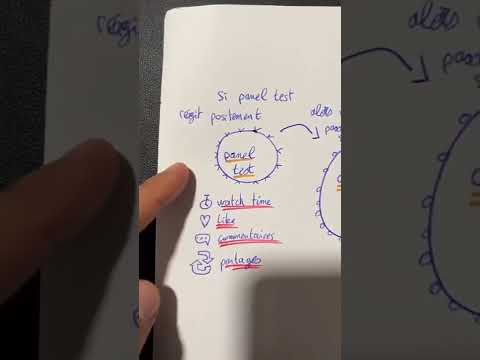 Si panel test
réagit positement
alors
pass
panel
test
watch time
like
commentaires
partages